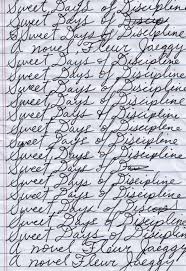 Sweet Days of Discipline
Sweet Days of Discip
Sweet Days of Discipline
A novel Fleur Jaeggy
Sweet Days of Discipline
Sweet Days of Discipline
Sweet Days of Discipline
Sweet Days of Discipline
Sweet Days of Discipline
Sweet Days of Discipline
Sweet Days of Discipline
Sweet Days of
Sweet Days of Discipline
Sweet Days of Discipline
Sweet Days of
Sweet Days of Discipline
Sweet Days of Discipline
A novel Fleur Jaeggy
A novel Fleur Jaeggy